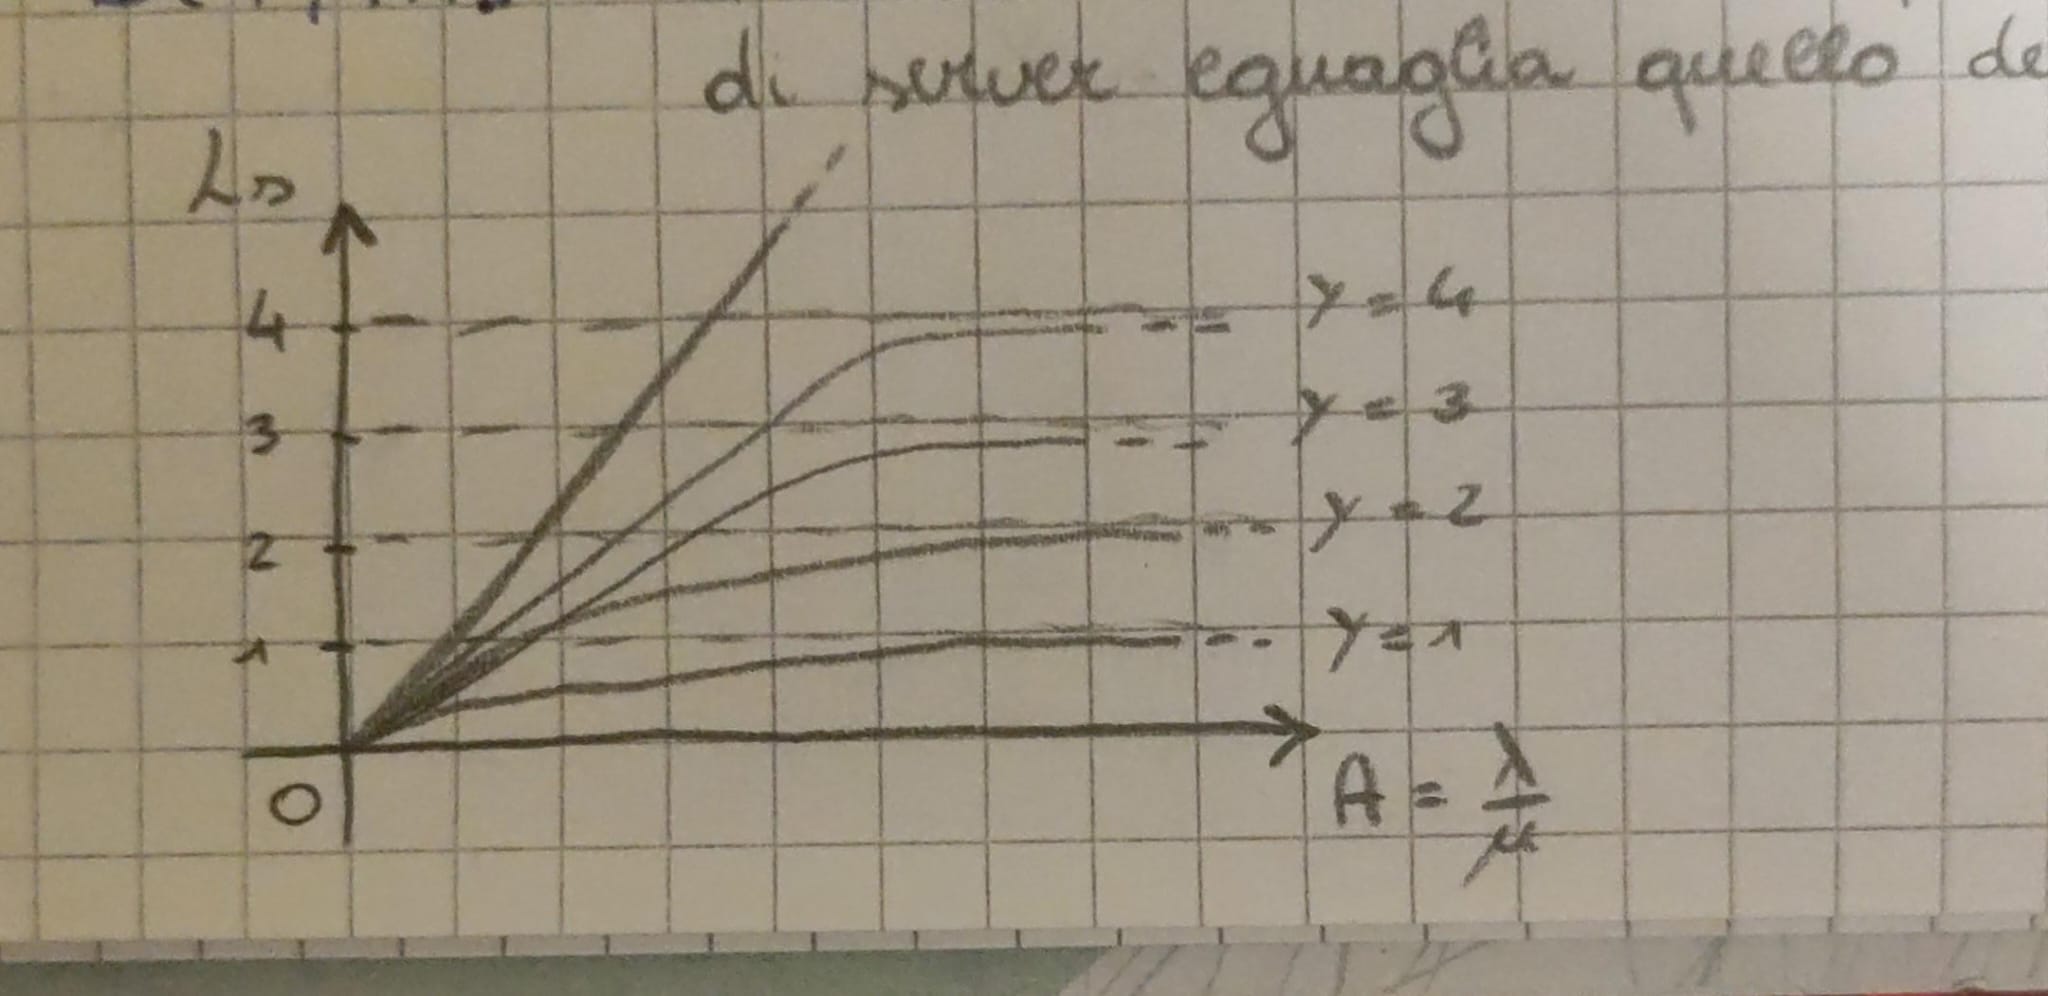 di server eguaglia quello de
Ls
4
3
2
1
0
y = 4
y = 3
y = 2
y = 1
A = λ/μ